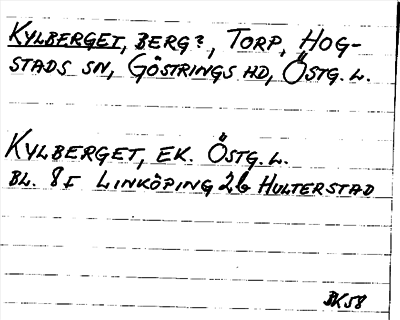 KYLBERGET, BERG?, TORP, HOG-
STADS SN, GÖSTRINGS HD, ÖSTG. L.
KYLBERGET, EK. ÖSTG. L.
BL. 8F LINKÖPING 2G HULTERSTAD
BK58